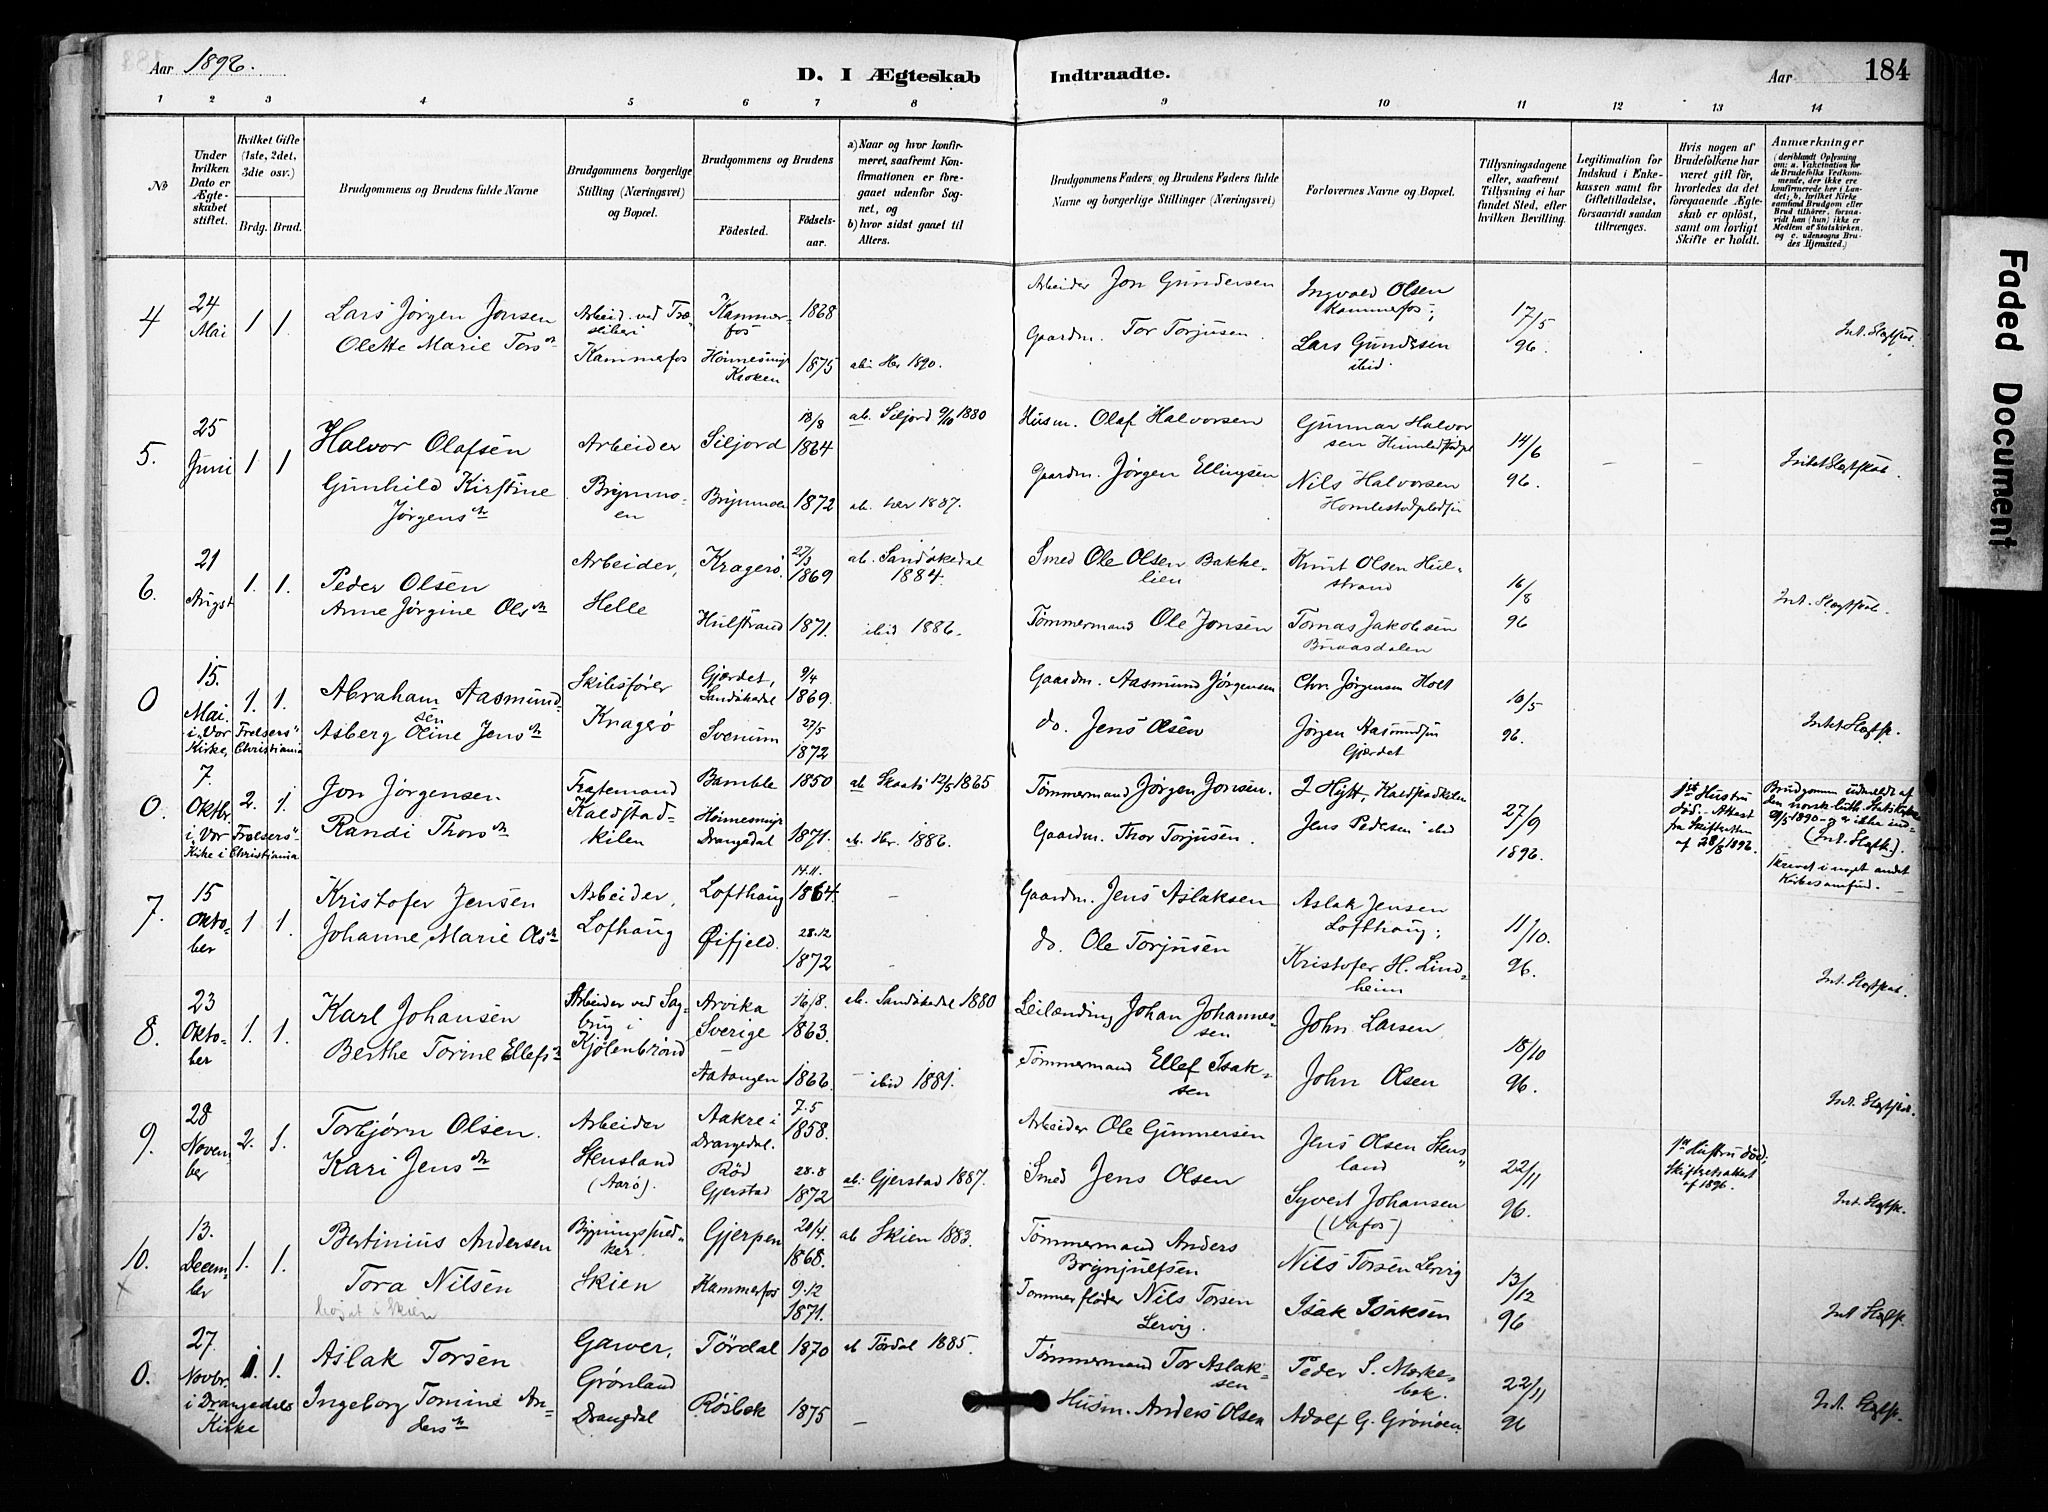 Aar 1896.
D. I Ægteskab Indtraadte.
Aar 184
1 2 3 4 5 6 7 8 9 10 11 12 13 14
No
Under hvilken Dato er Ægteskabet stiftet.
Hvilket Gifte (1ste, 2det, 3die osv.)
Brdg. Brud.
Brudgommens og Brudens fulde Navne
Brudgommens borgerlige Stilling (Næringsvei) og Bopæl.
Brudgommens og Brudens
Födested. Födsels-aar.
a) Naar og hvor konfirmeret, saafremt Konfirmationen er foregaaet udenfor Sognet, og
b) hvor sidst gaaet til Alters.
Brudgommens Faders, og Brudens Faders fulde Navne og borgerlige Stillinger (Næringsvei)
Forlovernes Navne og Bopæl.
Tillysningsdagene eller, saafremt Tillysning ei har fundet Sted, efter hvilken Bevilling.
Legitimation for Indskud i Enkekassen samt for Giftetilladelse, forsaavidt saadan tiltrænges.
Hvis nogen af Brudefolkene har været gift før, hvorledes da det foregaaende Ægteskab er oplöst, samt om lovligt Skifte er holdt.
Anmærkninger
(deriblandt Oplysning om: a. Vakcination for de Brudefolks Vedkommende, der ikke ere konfirmerede her i Landet; b. hvilket Kirkesamfund Brudgom eller Brud tilhörer, forsaavidt han (hun) ikke er Medlem af Statskirken, og c. udensogns Brudes Hjemsted.)
4 24 Mai 1 1. Lars Jørgen Jonsen
Olette Marie Torsdr
Arbeid. ved Træsliberi
Kammerfos
Kammerfos 1868
Kroken 1875 1890.
Arbeider Jon Gundersen
Gaardm. Tor Torjusen.
Ingvald Olsen Kammerfos;
Lars Gundersen ibid.
17/5 96.
Int. Slegtskab.
5. 25 Juni 1. 1 Halvor Olafsen
Gunhild Kirstine Jørgensdr
Arbeider
Brynmoen
Siljord 18/8 1864 ab. Siljord 9/10 1880
Brynmoen 1872 ab. her 1887.
Husm. Olaf Halvorsen
Gaardm. Jørgen Ellingsen
Gunnar Halvorsen
Nils Halvorsen
14/6 96.
Intet Slegtskab
6. 21 August 1. 1. Peder Olsen
Anne Jørgine Olsdr
Arbeider,
Helle
Kragerø. 27/3 1869 ab. Sandøkedal 1884.
Hulstrand 1871. ibid 1886.
Smed Ole Olsen Bakkelien
Tømmermand Ole Jonsen
Knut Olsen Hulstrand
Tomas Jakobsen
16/8 96
Int. Slegtskab.
0 15. Mai. i "Vor Frelsers" Kirke, Christiania
1. 1. Abraham Aasmundsen
Asberg Oline Jensdr
Skibsfører
Kragerø
Gjærdet, Sandøkedal 9/4 1869.
Svenum 27/5 1872
Gaardm. Aasmund Jørgensen
do. Jens Olsen
Chr. Jørgensen Holt
Jørgen Aasmundsen Gjærdet
10/5 96.
Intet Slegtsk.
0. 7. Oktbr. i "Vor Frelsers" Kirke i Christiania
2. 1. Jon Jørgensen
Randi Thorsdr
Kaldstadkilen
Bamble 1850 ab Skaatø 12/5 1865
Drangedal 1871. ab. Her. 1886.
Tømmermand Jørgen Jonsen.
Gaardm. Thor Torjusen.
J Hytt, Kaldstadkilen
Jens Pedersen ibid
27/9 1896.
1ste Hustru død. Attest fra Skifteretten af 28/8 1896.
Brudgommen udmeldt af den norsk-luth. Statskirke 9/5 1890 - er ikke indskrevet i noget andet Kirkesamfund.
(Int. Slegtsk.)
7. 15 Oktober 1 1. Kristofer Jensen
Johanne Marie Olsdr
Arbeider,
Lofthaug
Lofthaug 14.11. 1864. -
Øifjeld. 28.12 1872 -
Gaardm. Jens Aslaksen
do. Ole Torjusen
Aslak Jensen Lofthaug;
Kristofer H. Lindheim
11/10. 96.
Int. Slegtskab.
8. 23 Oktober 1. 1. Karl Johansen
Berthe Torine Ellefsdr
Arbeider ved Sagbrug i Kjølenbrønd
Arvika Sverige 16/8. 1863. ab. Sandøkedal 1880
Aatangen 1866. - ibid 1881.
Leilænding Johan Johannessen
Tømmermand Ellef Isaksen
John Larsen,
John Olsen
18/10 96.
Int. Slegtskab.
9. 28 November 2. 1. Torbjørn Olsen.
Kari Jensdr
Arbeider
Stensland (Aarø).
Aakre i Drangedal. 7.5 1858.
Rød Gjerstad 28.8 1872 ab. Gjerstad 1887.
Arbeider Ole Gunnersen
Smed Jens Olsen
Jens Olsen Stensland
Syvert Johansen (Vafos)
22/11 96.
1ste Hustru død; Skifteattest af 1896.
Int. Slegtsk.
10. 13. December 1. 1. Bertinius Andersen
Tora Nilsen
bosat i Skien
x
Bygningssnedker.
Skien
Gjerpen 20/4. 1868. ab Skien 1883.
Kammerfos 9.12 1871.
Tømmermand Anders Brynjulfsen
Tømmerfløder Nils Torsen Lervig.
Nils Torsen Lervig
Isak Isaksen
13/12 96
Int Slegtsk.
0. 27. Novbr. i Drangedals Kirke
1. 1. Aslak Torsen
Ingeborg Tomine Andersdr
Garver,
Grønland
Drangedal
Tørdal 1870 ab Tørdal 1885.
Røsbak 1875 -
Tømmermand Tor Aslaksen
Husm. Anders Olsen
Peder S. Morkebæk.
Adolf G. Grønåen
22/11 96
Int. Slegtsk.
Faded Document